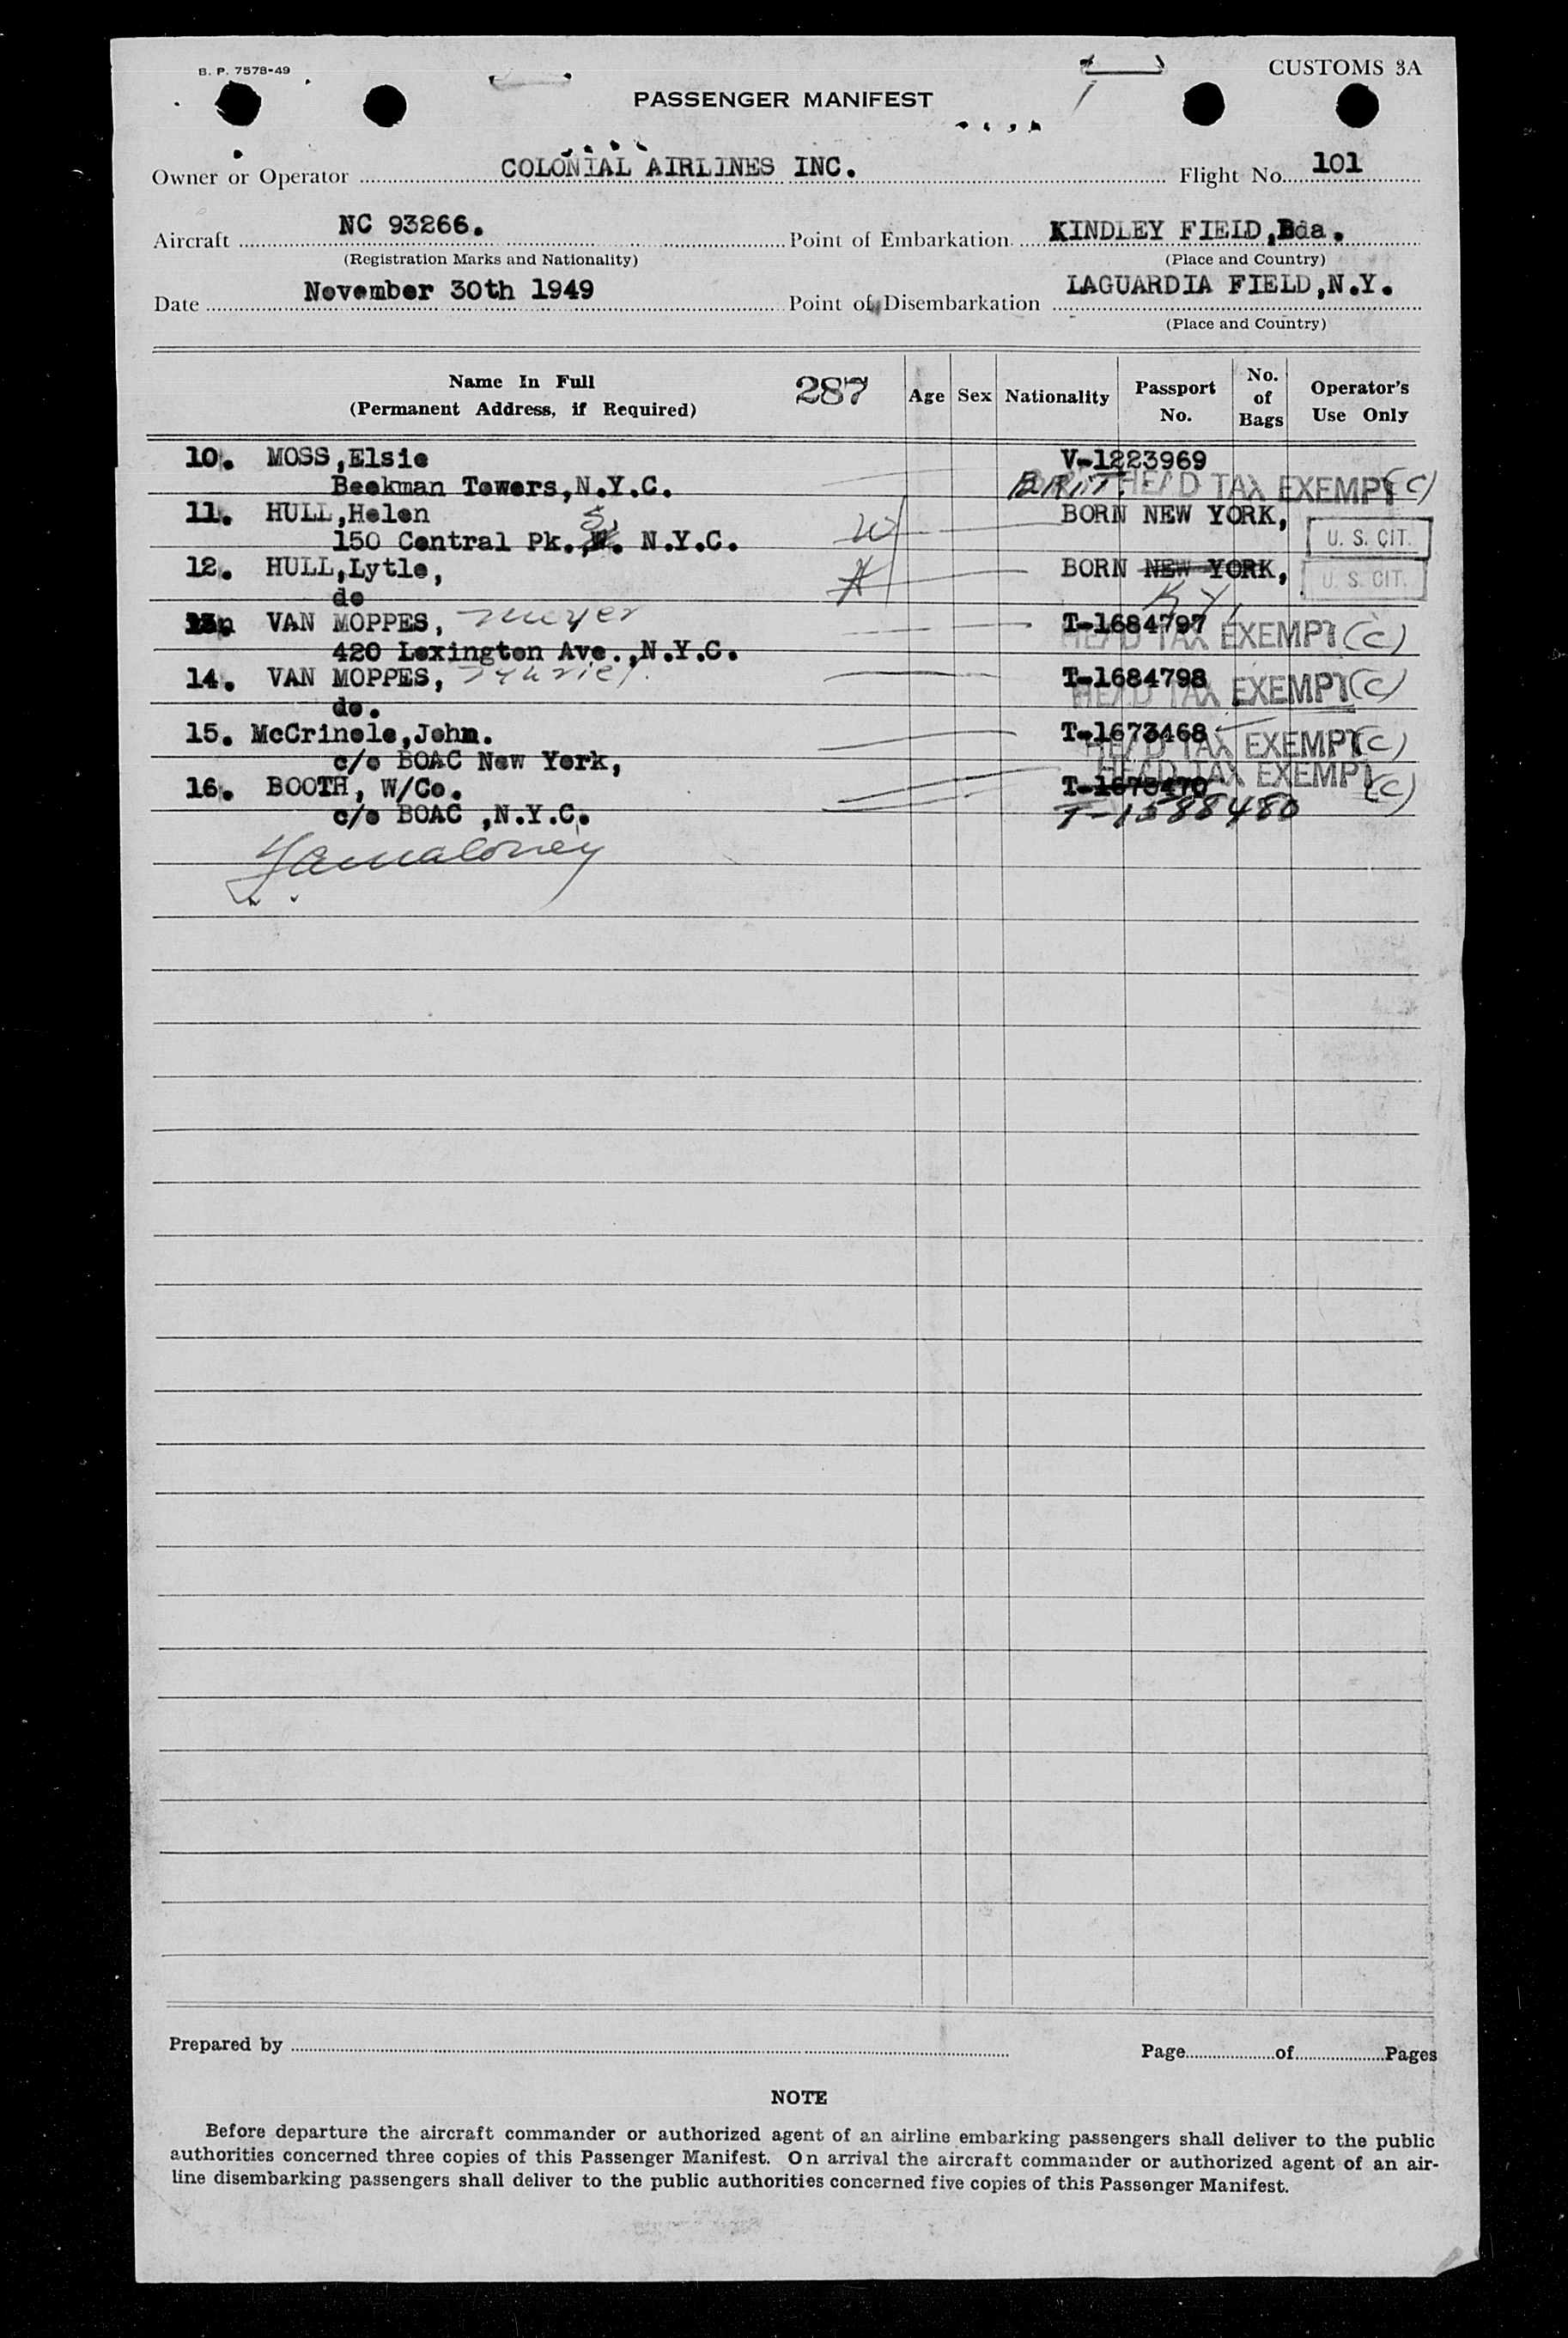 B. P. 7578-49
CUSTOMS 3A
PASSENGER MANIFEST
Owner or Operator COLONIAL AIRLINES INC. Flight No. 101
Aircraft NC 93266. Point of Embarkation KINDLEY FIELD,Bda.
(Registration Marks and Nationality) (Place and Country)
Date November 30th 1949 Point of Disembarkation LAGUARDIA FIELD,N.Y.
(Place and Country)
Name In Full (Permanent Address, if Required) 287 Age Sex Nationality Passport No. No. of Bags Operator's Use Only
10. MOSS,Elsie V-1223969
Beekman Towers,N.Y.C. BRIT. HEAD TAX EXEMPT (C)
11. HULL,Helen W BORN NEW YORK, U. S. CIT.
150 Central Pk.,S. N.Y.C.
12. HULL,Lytle, H BORN NEW YORK, U. S. CIT.
do KY,
13. VAN MOPPES, Meyer T-1684797
420 Lexington Ave.,N.Y.C. HEAD TAX EXEMPT (C)
14. VAN MOPPES, T-1684798
do. HEAD TAX EXEMPT (C)
15. McCrinole,John. T-1673468
c/o BOAC New York, HEAD TAX EXEMPT (C)
16. BOOTH, W/Co. T-1673470 HEAD TAX EXEMPT (C)
c/o BOAC ,N.Y.C. T-1588480
Prepared by Page of Pages
NOTE
Before departure the aircraft commander or authorized agent of an airline embarking passengers shall deliver to the public
authorities concerned three copies of this Passenger Manifest. On arrival the aircraft commander or authorized agent of an air-
line disembarking passengers shall deliver to the public authorities concerned five copies of this Passenger Manifest.